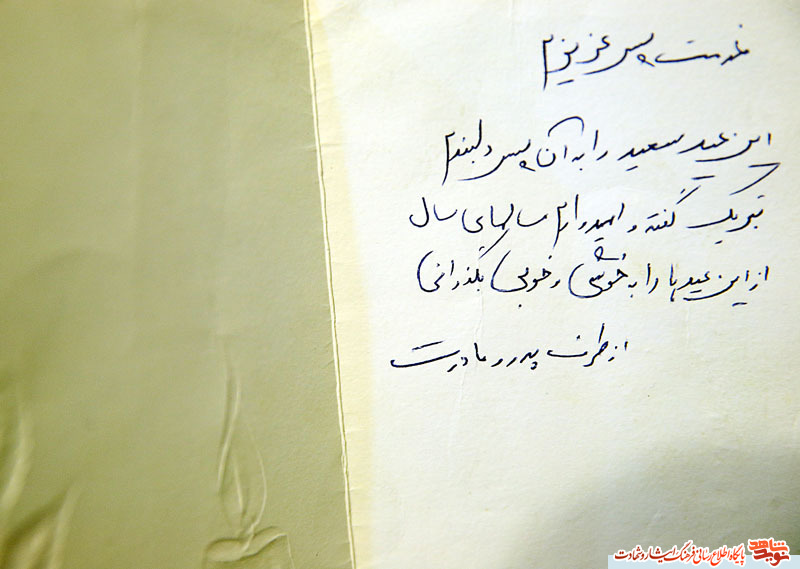 خدمت پسر عزیزم
این عید سعید را به آن پسر دلبندم
تبریک گفته و امیدوارم سالهای سال
از این عیدها را به خوشی و خوبی بگذرانی
از طرف پدر و مادرت
نوید شاهد پایگاه اطلاع رسانی فرهنگ ایثار و شهادت